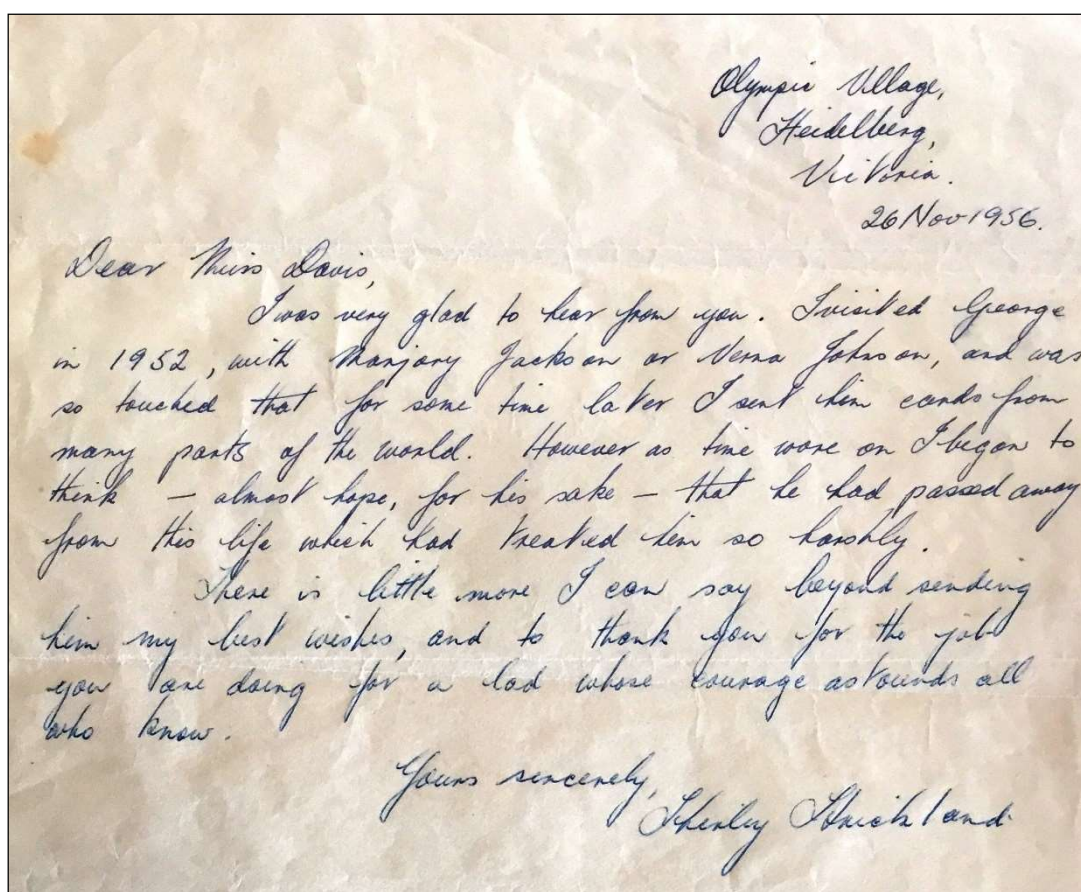 Olympic Village,
Heidelberg,
Victoria.
26 Nov 1956.
Dear Miss Davis,
I was very glad to hear from you. I visited George
in 1952, with Marjory Jackson or Verna Johnson, and was
so touched that for some time later I sent him cards from
many parts of the world. However as time wore on I began to
think – almost hope, for his sake – that he had passed away
from this life which had treated him so harshly.
There is little more I can say beyond sending
him my best wishes, and to thank you for the job
you are doing for a lad whose courage astounds all
who know.
Yours sincerely,
Shirley Strickland